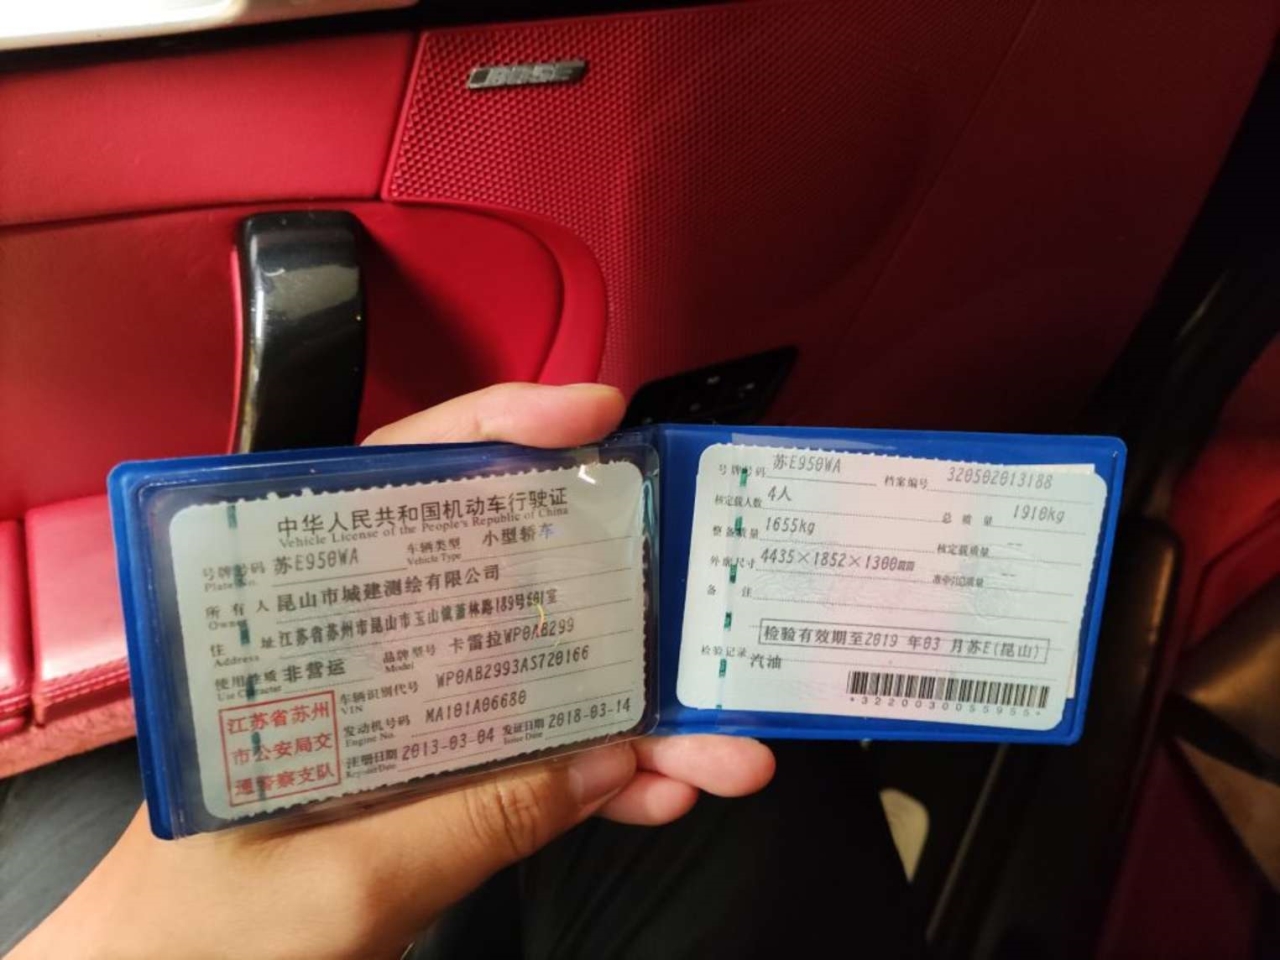 BOSE
中华人民共和国机动车行驶证
Vehicle License of the People's Republic of China
号牌号码 苏E950WA 车辆类型 小型轿车
Plate No. Vehicle Type
所有人 昆山市城建测绘有限公司
Owner
住址 江苏省苏州市昆山市玉山镇萧林路189号601室
Address
使用性质 非营运 品牌型号 卡雷拉WP0AB299
Use Character Model
江苏省苏州
市公安局交
通警察支队
车辆识别代号 WP0AB2993AS720166
VIN
发动机号码 MA101A06680
Engine No.
注册日期 2013-03-04 发证日期 2018-03-14
Register Date Issue Date
号牌号码 苏E950WA 档案编号 320502013188
核定载人数 4人 总质量 1910kg
整备质量 1655kg 核定载质量 --
外廓尺寸 4435×1852×1300mm 准牵引总质量 --
备注
检验有效期至2019年03月苏E(昆山)
检验记录 汽油
*3220030055955*